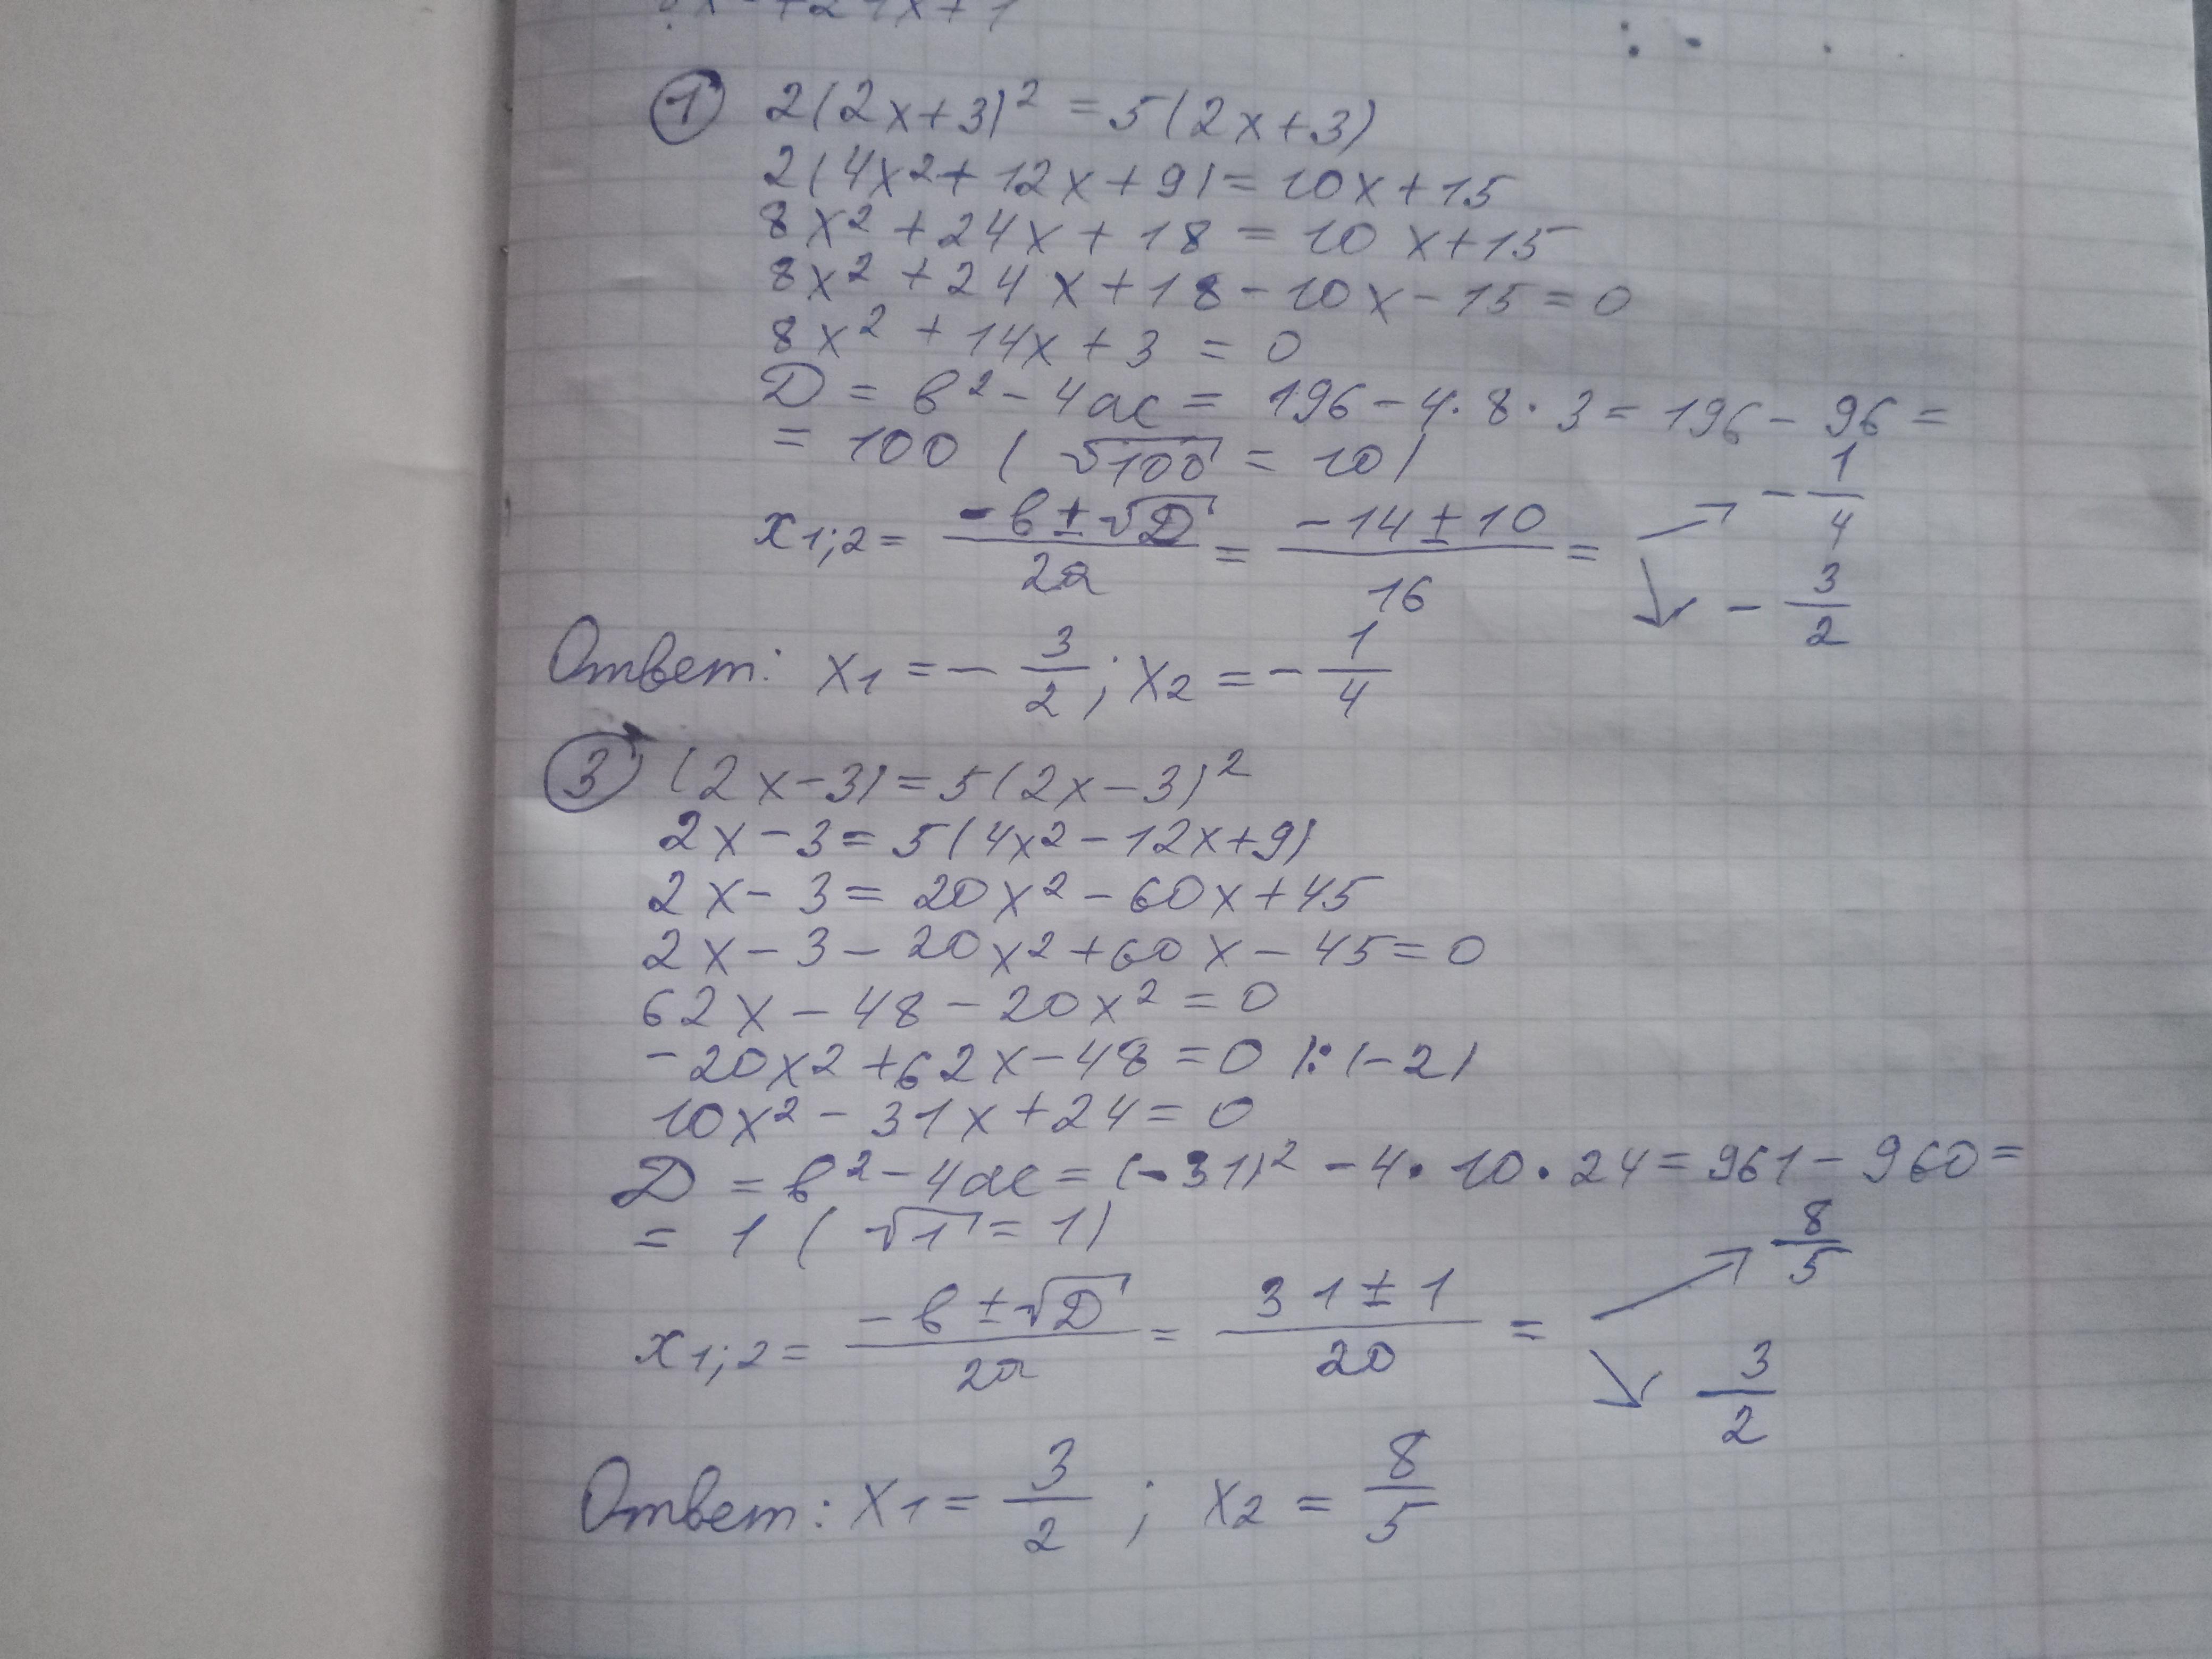 ① 2(2x+3)² = 5(2x+3)
2(4x²+12x+9) = 10x+15
8x²+24x+18 = 10x+15
8x²+24x+18-10x-15=0
8x²+14x+3=0
D = b²-4ac = 196-4·8·3 = 196-96 =
= 100 (√100 = 10)
x1;2 = (-b±√D)/2a = (-14±10)/16 = ↗ -1/4 ↘ -3/2
Ответ: x1 = -3/2; x2 = -1/4
③ (2x-3) = 5(2x-3)²
2x-3 = 5(4x²-12x+9)
2x-3 = 20x²-60x+45
2x-3-20x²+60x-45=0
62x-48-20x²=0
-20x²+62x-48=0 |:(-2)
10x²-31x+24=0
D = b²-4ac = (-31)²-4·10·24 = 961-960 =
= 1 (√1 = 1)
x1;2 = (-b±√D)/2a = (31±1)/20 = ↗ 8/5 ↘ 3/2
Ответ: x1 = 3/2; x2 = 8/5